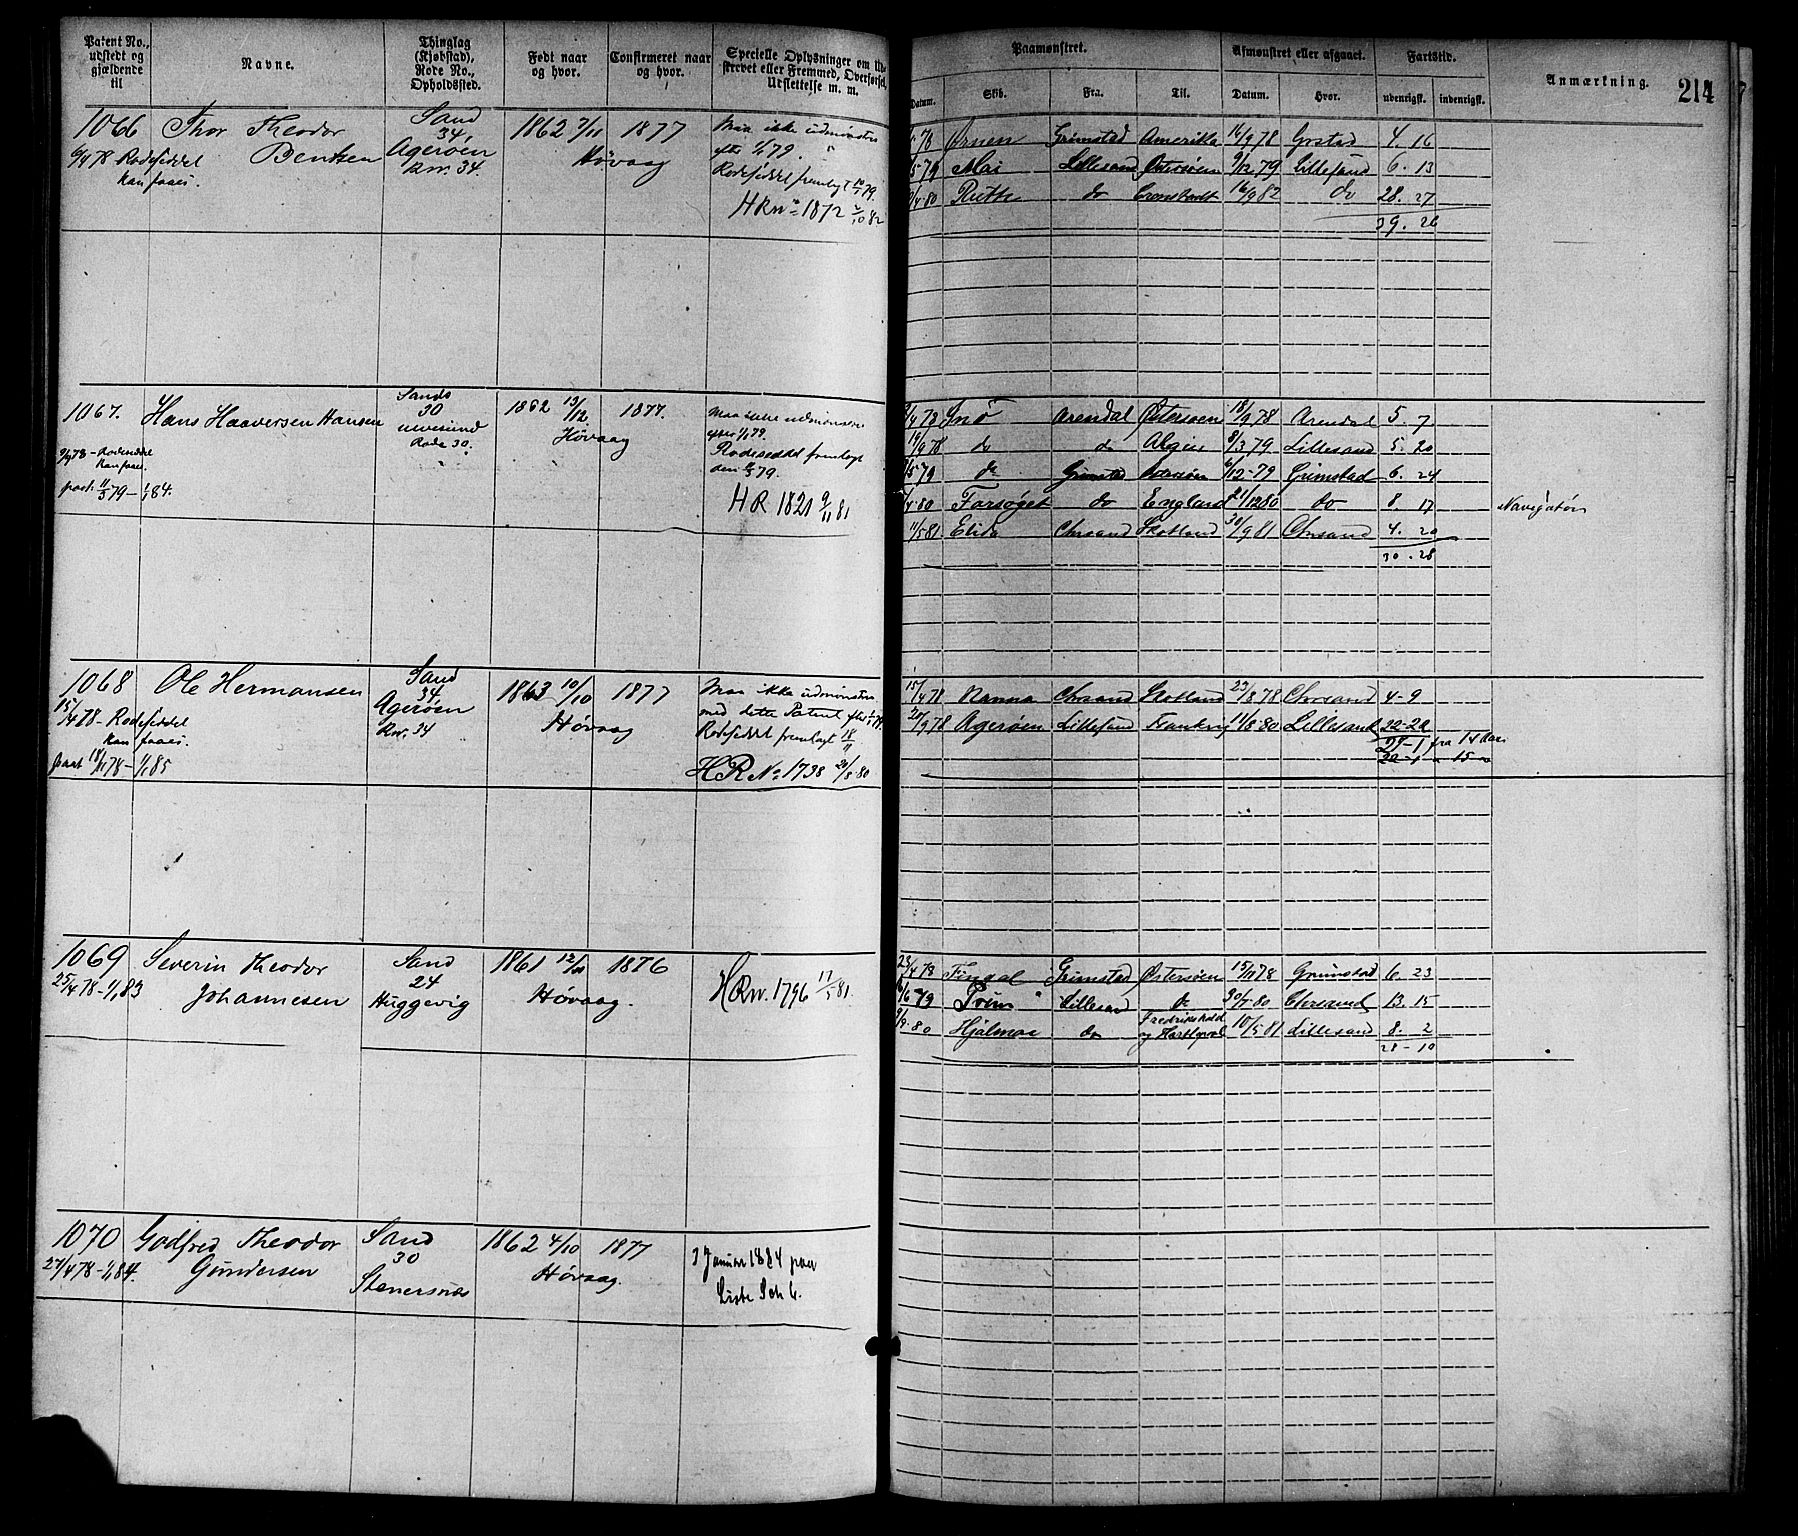 Patent No., udstedt og gjældende til
Navne.
Thinglag (Kjøbstad), Rode No., Opholdssted.
Født naar og hvor.
Confirmeret naar og hvor.
Specielle Oplysninger om Ud-
skrevet eller Fremmed, Overførsel,
Udslettelse m. m.
Paamønstret.
Datum. Skib. Fra. Til.
Afmønstret eller afgaaet.
Datum. Hvor.
Fartstid.
udenrigst. indenrigst.
Anmærkning.
214
1066 Thor Theodor Bentsen
6/4 78 Rodeseddel
kan faaes.
Sand
34
Agerøen
Rw. 34
1862 7/11 1877
Høvaag
Maa ikke udmønstres
efter 1/1 79.
Rodeseddel fremlagt 79.
HRw 1872 2/10 82
78 Ørnen Grimstad Amerika 14/9 78 Grstad 4. 16
79 Mai Lillesand Østersøen 9/12 79 Lillesand 6. 13
80 Ruth do Cronstadt 16/9 82 do 28. 27
39. 26
1067. Hans Haaversen Hansen
78 - Rodeseddel
kan faaes.
11/3 79 - 1/1 84.
Sands
30
Ulvesund
Rode 30.
1862 13/12 1877.
Høvaag
Maa ikke udmønstres
efter 1/1 79.
Rodeseddel fremlagt
den 79.
HR 1821 9/11 81
78 Snö Arendal Østersøen 18/9 78 Arendal 5. 7
19/9 78 do do Algier 8/3 79 Lillesand 5. 20
79 do Grimstad Østersøen 6/12 79 Grimstad 6. 24
80 Forsøget do England 21/12 80 do 8. 17 Navigatør
11/5 81 Elida Chrsand Skotland 30/9 81 Chrsand 4. 20
30. 28
1068 Ole Hermansen
15/4 78 - Rodeseddel
kan faaes.
18/11 78 - 1/1 85
Sand
34
Agerøen
Rw. 34
1863 10/10 1877
Høvaag
Maa ikke udmønstres
med dette Patent efter 79
Rodeseddel fremlagt 18/11
HR No 1738 20/8 80
15/4 78 Nanna Chrsand Skotland 23/8 78 Chrsand 4 - 9
20/9 78 Agerøen Lillesand Frankrig 11/8 80 Lillesand 22 - 22
27 - 1 fra 14 Aar
20 - 1 " 15 "
1069 Severin Theodor Johannesen
25/4 78 - 1/1 83
Sand
24
Huggevig
1861 12/11 1876
Høvaag.
HRw. 1796 17/5 81
23/4 78 Fingal Grimstad Østersøen 15/11 78 Grimstad 6. 23
6/6 79 Prim Lillesand do 30/7 80 Chrsand 13. 15
9/9 80 Hjalmar do Fredrikshald og Hartlepool 10/5 81 Lillesand 8. 2
28 - 10
1070 Godfred Theodor Gundersen
27/4 78 - 1/1 84.
Sand
30
Stenersnæs
1862 4/10 1877
Høvaag.
3 Januar 1884 paa
Liste